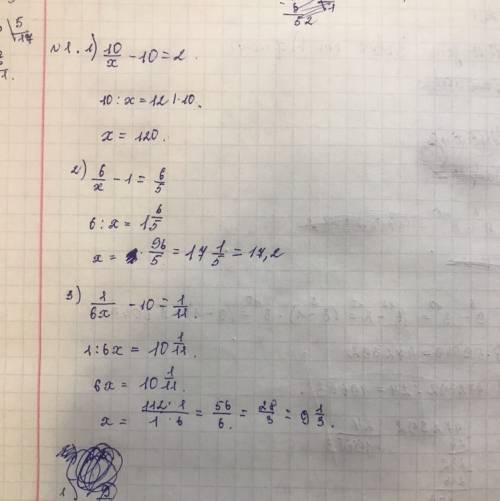 5
52
№1. 1) 10/x - 10 = 2.
10 : x = 12 | · 10.
x = 120.
2) 6/x - 1 = 6/5
6 : x = 1 6/5
x = 96/5 = 17 1/5 = 17,2
3) 1/6x - 10 = 1/11.
1 : 6x = 10 1/11.
6x = 10 1/11.
x = 112 · 1/1 · 6 = 56/6. = 28/3 = 9 1/3.